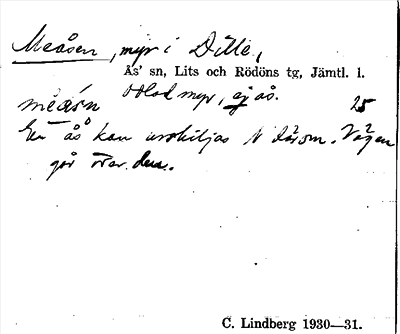 Meåsen, myr i Dille,
Ås' sn, Lits och Rödöns tg, Jämtl. l.
odlad myr, ej ås.
meåsn 25
En ås kan urskiljas N därom. Vägen
går över den.
C. Lindberg 1930—31.